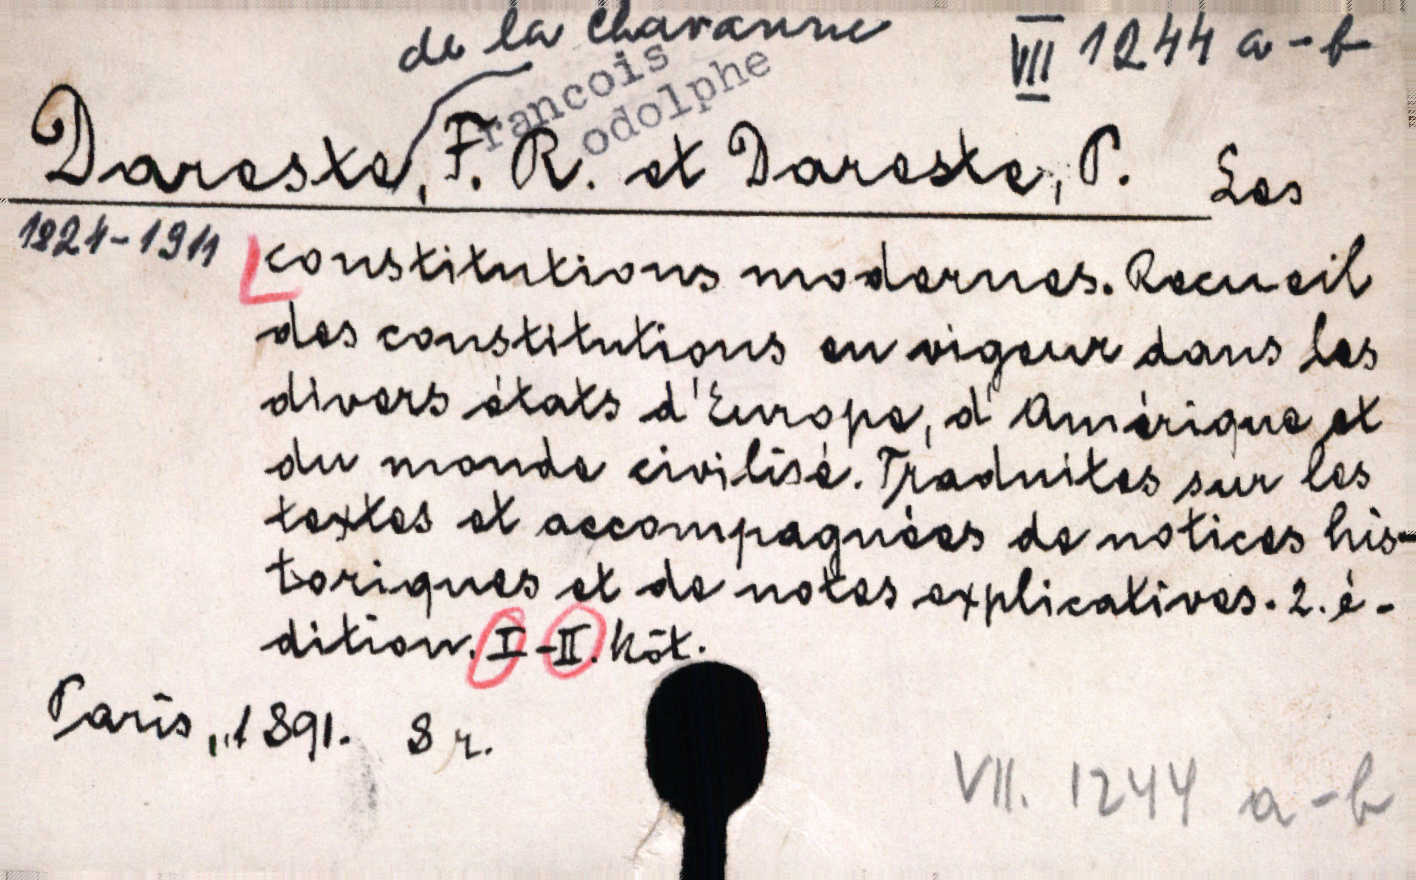 de la Chavanne
VII 1244 a-b
rancois
odolphe
Dareste, F. R. et Dareste, P. Les
1824-1911
constitutions modernes. Recueil
des constitutions en vigeur dans les
divers états d'Europe, d'Amérique et
du monde civilisé. Traduites sur les
textes et accompagnées de notices his-
toriques et de notes explicatives. 2. é-
dition. I-II. köt.
Paris, 1891. 8 r.
VII. 1244 a-b